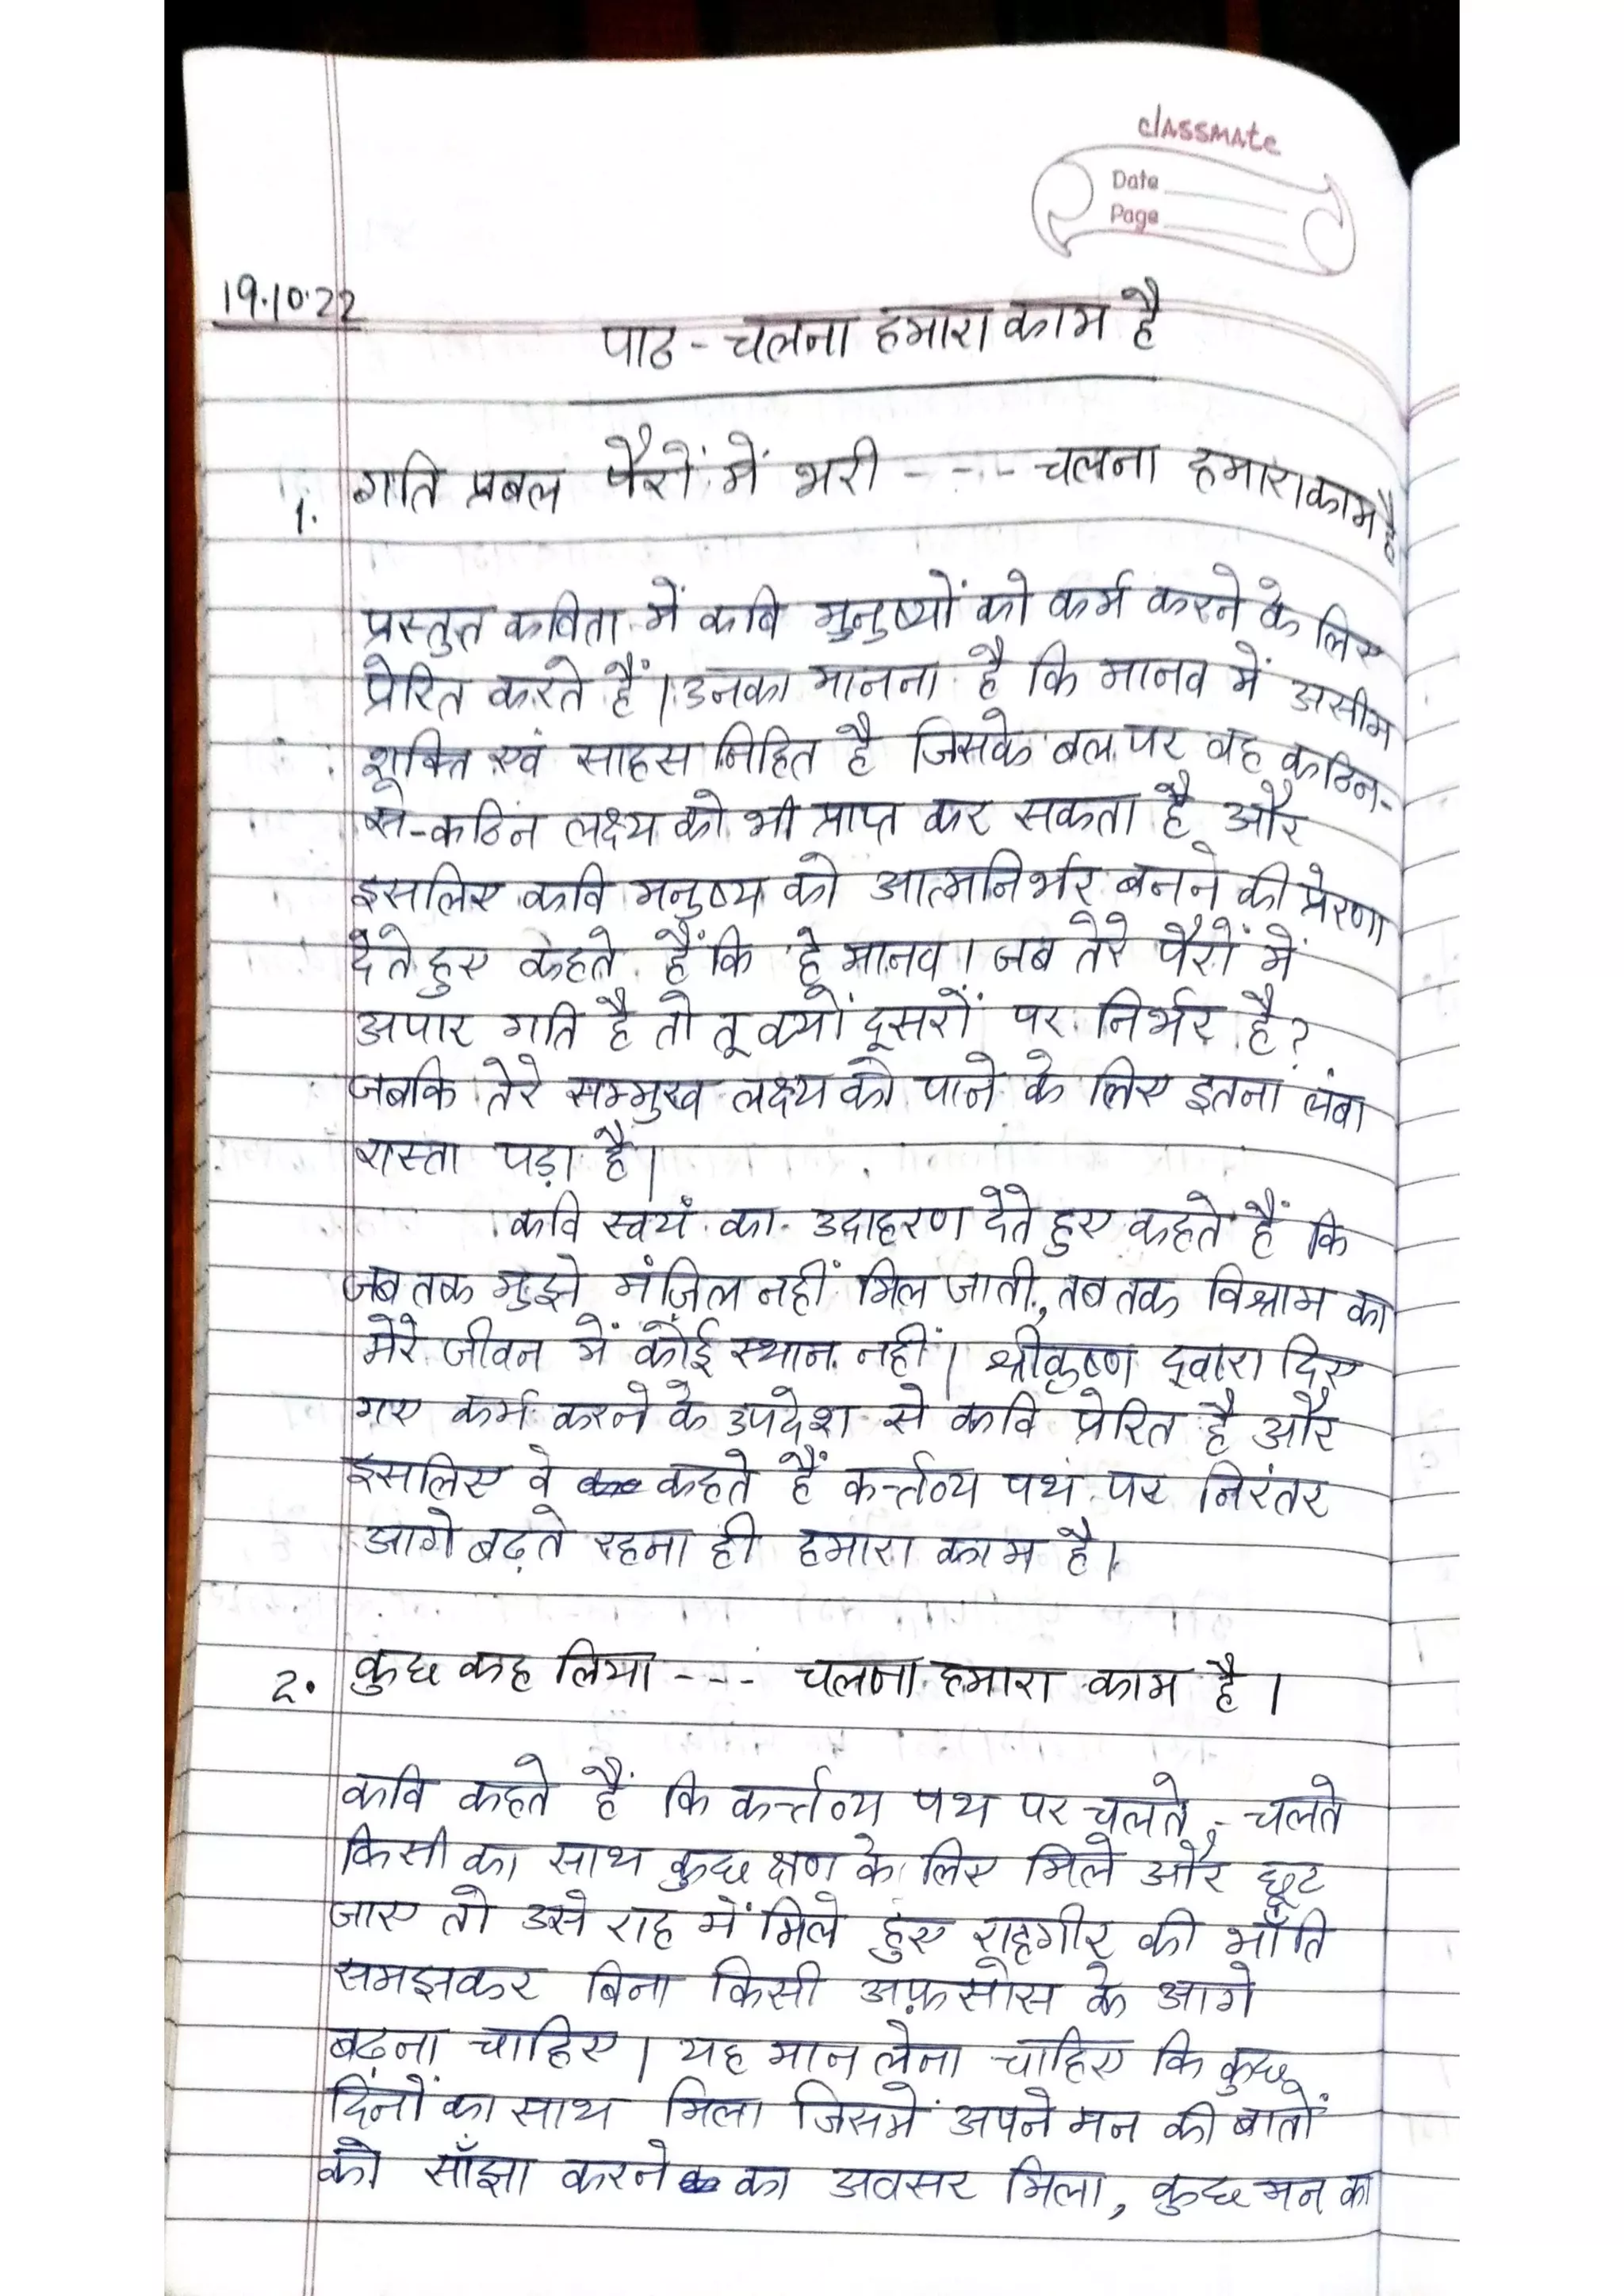 classmate
Date
Page
19.10.22
पाठ - चलना हमारा काम है
1. गति प्रबल पैरों में भरी - - - चलना हमारा काम है
प्रस्तुत कविता में कवि मुनुष्यों को कर्म करने के लिए
प्रेरित करते हैं। उनका मानना है कि मानव में असीम
शक्ति एवं साहस निहित है जिसके बल पर वह कठिन-
से-कठिन लक्ष्य को भी प्राप्त कर सकता है और
इसलिए कवि मनुष्य को आत्मनिर्भर बनने की प्रेरणा
देते हुए कहते हैं कि हे मानव। जब तेरे पैरों में
अपार गति है तो तू क्यों दूसरों पर निर्भर है?
जबकि तेरे सम्मुख लक्ष्य को पाने के लिए इतना लंबा
रास्ता पड़ा है।
कवि स्वयं का उदाहरण देते हुए कहते हैं कि
जब तक मुझे मंज़िल नहीं मिल जाती, तब तक विश्राम का
मेरे जीवन में कोई स्थान नहीं। श्रीकृष्ण द्वारा दिए
गए कर्म करने के उपदेश से कवि प्रेरित है और
इसलिए वे कहते हैं कर्त्तव्य पथ पर निरंतर
आगे बढ़ते रहना ही हमारा काम है।
2. कुछ कह लिया - - - चलना हमारा काम है।
कवि कहते हैं कि कर्त्तव्य पथ पर चलते - चलते
किसी का साथ कुछ क्षण के लिए मिले और छूट
जाए तो उसे राह में मिले हुए राहगीर की भाँति
समझकर बिना किसी अफ़सोस के आगे
बढ़ना चाहिए। यह मान लेना चाहिए कि कुछ
दिनों का साथ मिला जिसमें अपने मन की बातों
को साँझा करने का अवसर मिला, कुछ मन का